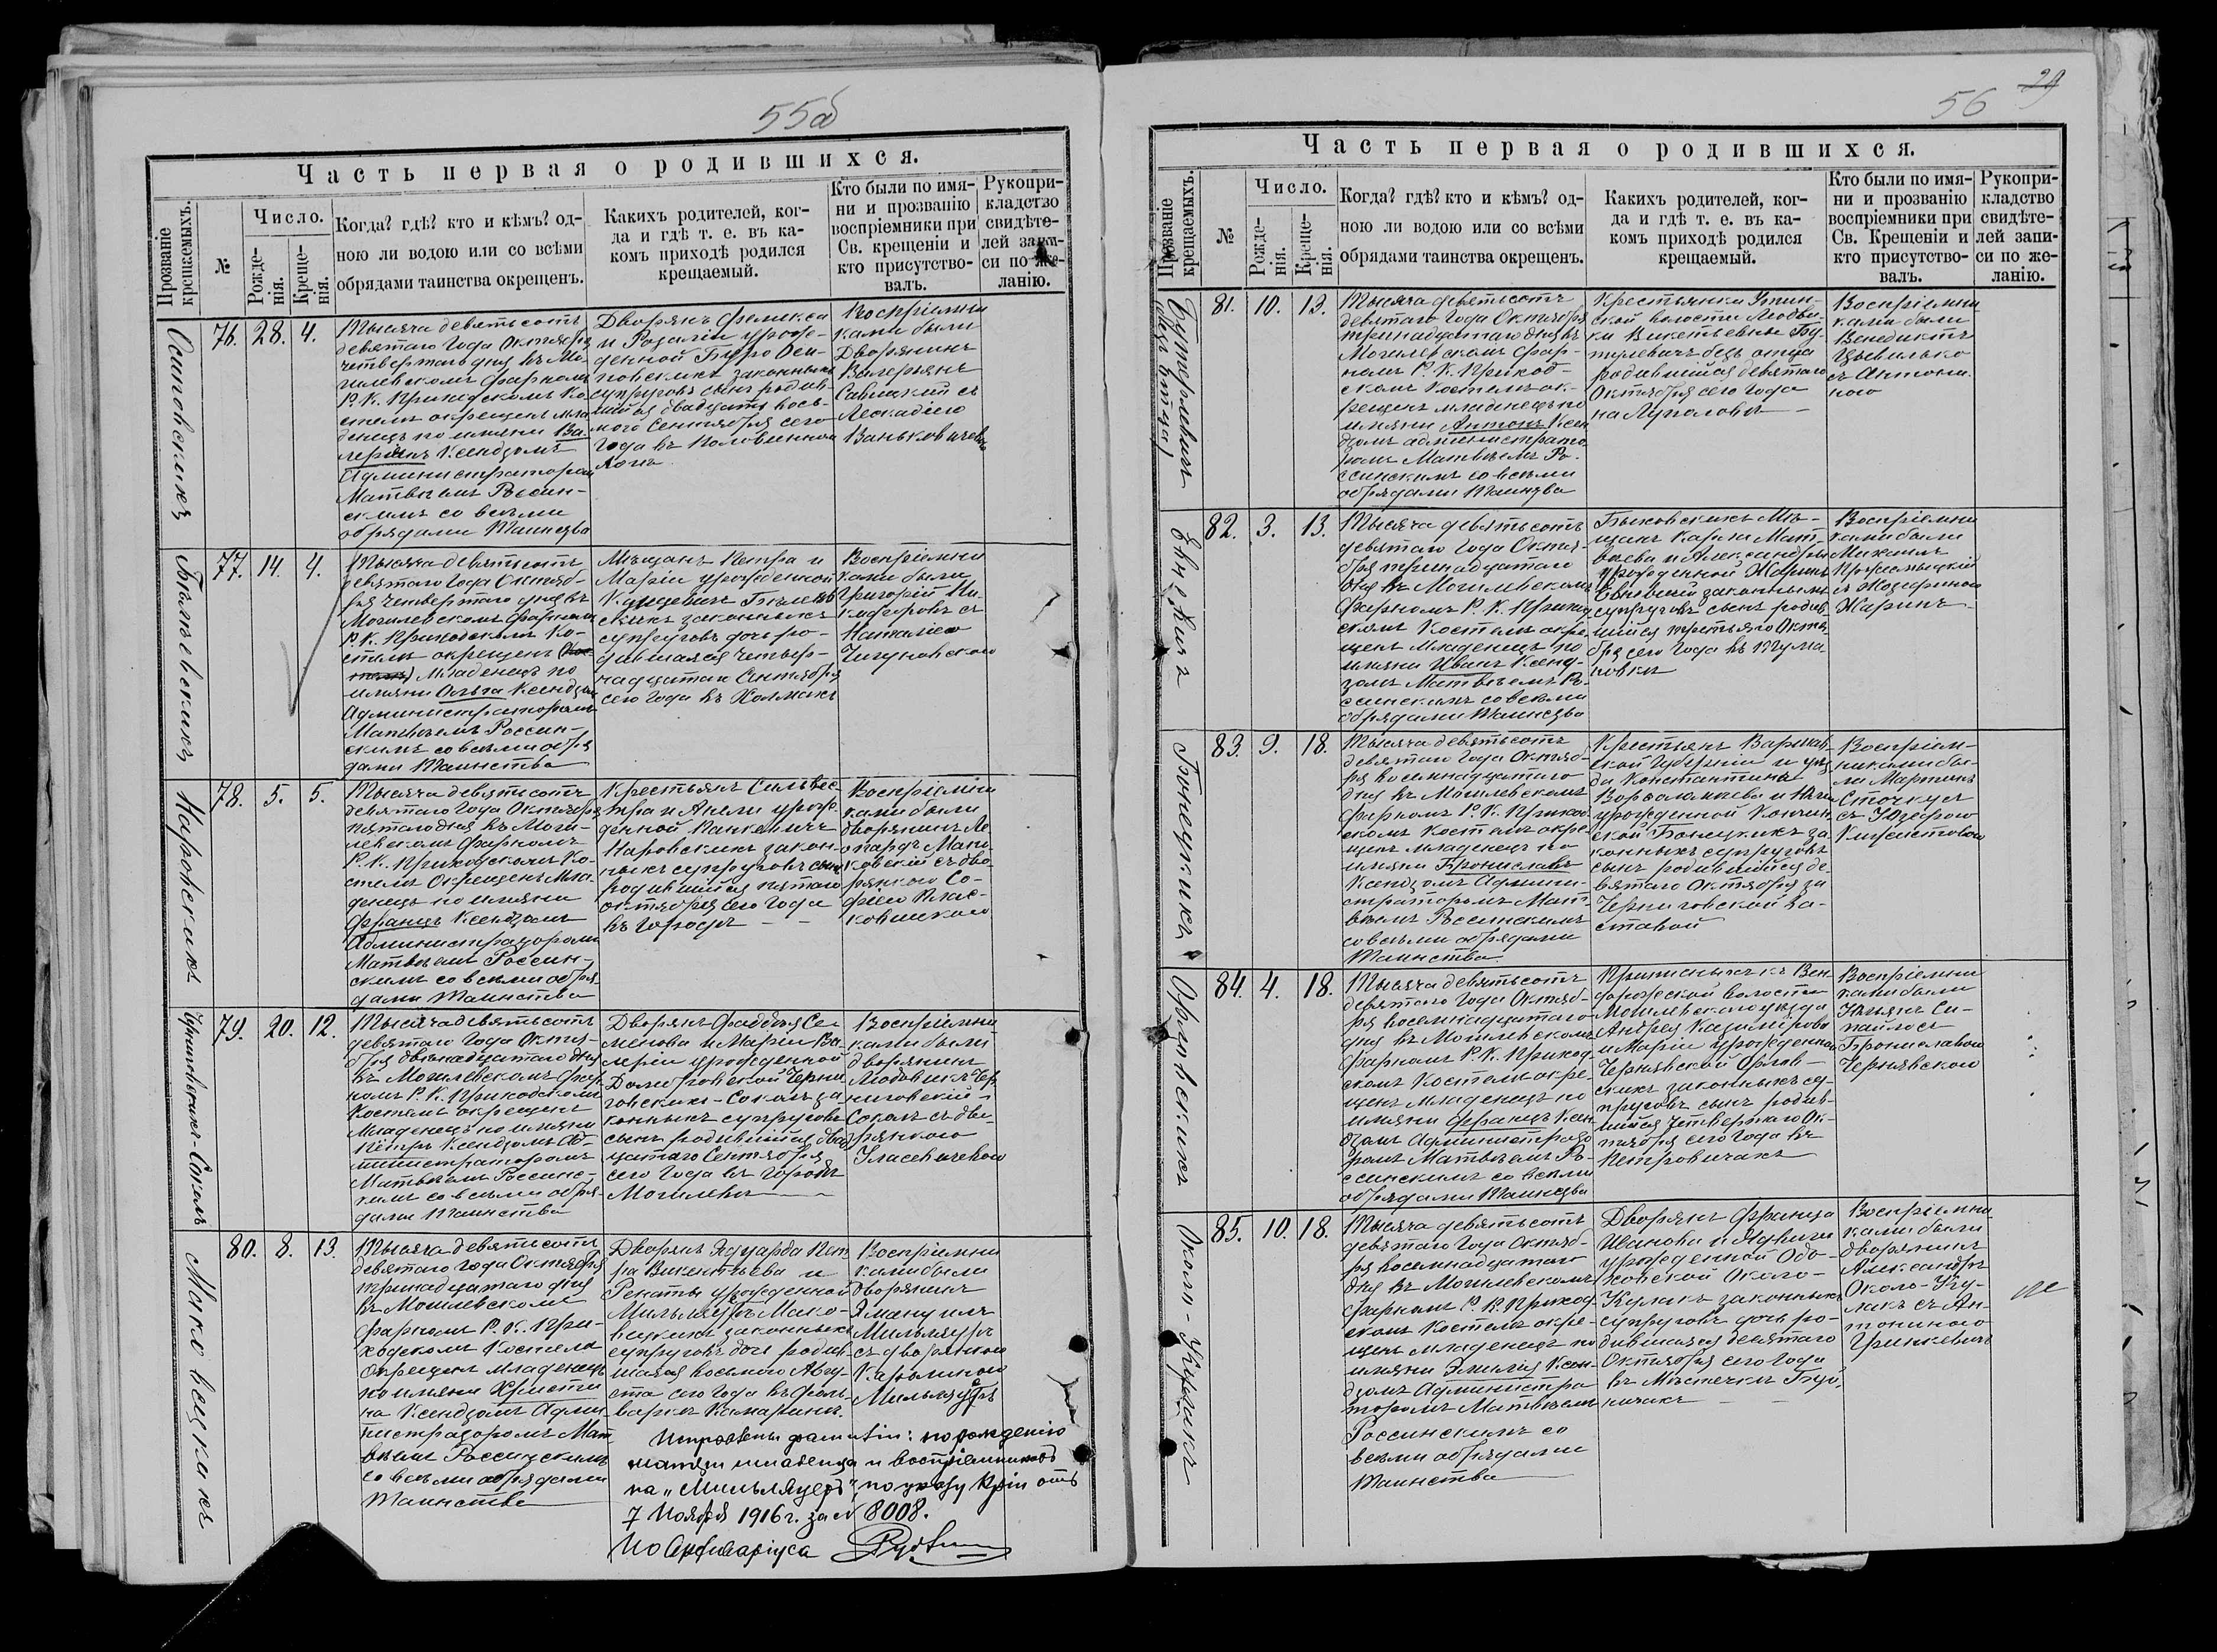 55об
Часть первая о родившихся.
Прозваніе крещаемыхъ.
№
Число.
Рожде-
нія.
Креще-
нія.
Когда? гдѣ? кто и кѣмъ? од-
ною ли водою или со всѣми
обрядами таинства окрещенъ.
Какихъ родителей, ког-
да и гдѣ т. е. въ ка-
комъ приходѣ родился
крещаемый.
Кто были по имя-
ни и прозванію
воспріемники при
Св. крещеніи и
кто присутство-
валъ.
Рукопри-
кладство
свидѣте-
лей запи-
си по же-
ланію.
Осиповскихъ
76. 28. 4.
Тысяча девятьсотъ
девятаго года Октября
четвертаго дня въ Мо-
гилевскомъ фарномъ
Р. К. Приходскомъ Ко-
стелѣ окрещенъ мла-
денецъ по имяни Ва-
лерьянъ Ксендзомъ
Администраторомъ
Матвѣемъ Россин-
скимъ со всѣми
обрядами Таинства
Дворянъ Феликса
и Розаліи урож-
денной Бируло Оси-
повскихъ законныхъ
супруговъ сынъ родив-
шійся двадцать вось-
мого Сентября сего
года въ Половинномъ
Логѣ
Воспріемни
ками были
Дворянинъ
Валерьянъ
Савицкій съ
Леокадіею
Ваньковичевъ
Бѣлевскихъ
77. 14. 4.
Тысяча девятьсотъ
девятаго года Октяб-
ря четвертаго дня въ
Могилевскомъ фарномъ
Р. К. Приходскомъ Ко-
стелѣ окрещенъ
Младенецъ по
имяни Ольга Ксендзомъ
Администраторомъ
Матвѣемъ Россин-
скимъ со всѣми обря
дами Таинства
Мѣщанъ Петра и
Маріи урожденной
Бѣлев
скихъ законныхъ
супруговъ дочь ро-
дившаяся четыр-
надцатаго Сентября
сего года въ Холмахъ
Воспріемни
ками были
Григорій Ни-
кифоровъ съ
Наталіею
Чигуновскою
Наровскихъ
78. 5. 5.
Тысяча девятьсотъ
девятаго года Октября
пятаго дня въ Моги-
левскомъ фарномъ
Р. К. Приходскомъ Ко-
стелѣ Окрещенъ Мла-
денецъ по имяни
Францъ Ксендзомъ
Администраторомъ
Матвѣемъ Россин-
скимъ со всѣми обря
дами Таинства
Крестьянъ Сильвес
тра и Анели урож-
денной Панкевичъ
Наровскихъ закон-
ныхъ супруговъ сынъ
родившійся пятаго
октября сего года
въ городѣ
Воспріемни
ками были
дворянинъ Ле
опардъ Мань
ковскій съ дво-
рянкою Со-
фіею Плас-
ковицкою
Черниговскихъ-Соколъ
79. 20. 12.
Тысяча девятьсотъ
девятаго года Октя-
бря двѣнадцатаго дня
въ Могилевскомъ фар-
номъ Р. К. Приходскомъ
Костелѣ окрещенъ
Младенецъ по имяни
Петръ Ксендзомъ Ад-
министраторомъ
Матвѣемъ Россинс-
кимъ со всѣми обря-
дами Таинства
Дворянъ Фаддея Се-
менова и Маріи Ва-
леріи урожденной
Домбровской Черни-
говскихъ-Соколъ за-
конныхъ супруговъ
сынъ родившійся двад
цатаго Сентября
сего года въ городѣ
Могилевѣ
Воспріемни
ками были
дворянинъ
Людовикъ Чер
ниговскій-
Соколъ съ дво-
рянкою
Уласевичевою
Маковецкихъ
80. 8. 13.
Тысяча девятьсотъ
девятаго года Октября
тринадцатаго дня
въ Могилевскомъ
фарномъ Р. К. При-
ходскомъ Костелѣ
Окрещенъ младенецъ
по имяни Христи
на Ксендзомъ Адми-
нистраторомъ Мат-
вѣемъ Россинскимъ
со всѣми обрядами
Таинства
Дворянъ Эдуарда Пет
ра Викентьева и
Ренаты урожденной
Мильляуеръ Мако-
вецкихъ законныхъ
супруговъ дочь родив-
шаяся восьмого Авгу-
ста сего года въ фоль-
варкѣ Камаринѣ.
Воспріемни
ками были
дворянинъ
Эмануилъ
Мильляуеръ
съ дворянкою
Каролиною
Мильляуеръ
Исправлены фамиліи: по рожденію
матери младенца и воспріемниковъ
на „Мильляуеръ", по указу Кріи отъ
7 Ноября 1916 г. за № 8008.
56
29
Часть первая о родившихся.
Прозваніе крещаемыхъ.
№
Число.
Рожде-
нія.
Креще-
нія.
Когда? гдѣ? кто и кѣмъ? од-
ною ли водою или со всѣми
обрядами таинства окрещенъ.
Какихъ родителей, ког-
да и гдѣ т. е. въ ка-
комъ приходѣ родился
крещаемый.
Кто были по имя-
ни и прозванію
воспріемники при
Св. Крещеніи и
кто присутство-
валъ.
Рукопри-
кладство
свидѣте-
лей запи-
си по же-
ланію.
Буткревичъ
(безъ отца)
81. 10. 13.
Тысяча девятьсотъ
девятаго года Октября
тринадцатаго дня въ
Могилевскомъ фар-
номъ Р. К. Приход-
скомъ Костелѣ ок-
рещенъ младенецъ по
имяни Антонъ Ксен
дзомъ администрато
ромъ Матвѣемъ Ро-
ссинскимъ со всѣми
обрядами Таинства
Крестьянки
ской волости Людви-
ки Викентьевны
безъ отца
родившійся девятаго
Октября сего года
на Луполовѣ
Воспріемни
ками были
Венедиктъ
Цвѣтлько
съ Антони-
ною
82. 3. 13.
Тысяча девятьсотъ
девятаго года Октя-
бря тринадцатаго
дня въ Могилевскомъ
Фарномъ Р. К. Приход
скомъ Костелѣ окре-
щенъ Младенецъ по
имяни Иванъ Ксенд-
зомъ Матвѣемъ Ро-
ссинскимъ со всѣми
обрядами Таинства
Быховскихъ Мѣ-
щанъ Карла Мат-
вѣева и Александры
урожденной Жаринъ
законныхъ
супруговъ сынъ родив-
шійся третьяго Октя-
бря сего года въ Тума-
новкѣ
Воспріемни
ками были
Михаилъ
съ Жозефиною
Жаринъ
Бонецкихъ
83. 9. 18.
Тысяча девятьсотъ
девятаго года Октяб-
ря восемнадцатаго
дня въ Могилевскомъ
фарномъ Р. К. Приход
скомъ Костелѣ окре-
щенъ Младенецъ по
имяни Брониславъ
Ксендзомъ Админи-
страторомъ Мат-
вѣемъ Россинскимъ
со всѣми обрядами
Таинства.
Крестьянъ Варшав-
ской Губерніи и уѣз-
да Константина
Варѳоломеева и
урожденной
ской Бонецкихъ за-
конныхъ супруговъ
сынъ родившійся де-
вятаго Октября за
Черниговской за-
ставой
Воспріем-
никами бы-
ли Мартинъ
Сточкусъ
съ Юзефою
Орловскихъ
84. 4. 18.
Тысяча девятьсотъ
девятаго года Октяб-
ря восемнадцатаго
дня въ Могилевскомъ
фарномъ Р. К. Приход
скомъ Костелѣ окре-
щенъ Младенецъ по
имяни Францъ Ксен
дзомъ Администрато
ромъ Матвѣемъ Ро-
ссинскимъ со всѣми
обрядами Таинства
Приписныхъ къ Вен-
дорожской волости
Могилевскаго уѣзда
Андрея Казимірова
и Маріи урожденной
Чернявской Орлов-
скихъ законныхъ су-
пруговъ сынъ родив-
шійся четвертаго Ок-
тября сего года въ
Петровичахъ
Воспріемни
ками были
Ульянъ Си-
пайлосъ
Брониславою
Чернявскою
Около-Кулакъ
85. 10. 18.
Тысяча девятьсотъ
девятаго года Октяб-
ря восемнадцатаго
дня въ Могилевскомъ
фарномъ Р. К. Приход
скомъ Костелѣ окре-
щенъ Младенецъ по
имяни Эмилія Ксен-
дзомъ Администра
торомъ Матвѣемъ
Россинскимъ со
всѣми обрядами
Таинства
Дворянъ Франца
Иванова и Ядвиги
урожденной Одо-
ховской Около-
Кулакъ законныхъ
супруговъ дочь ро-
дившаяся девятаго
Октября сего года
въ Мѣстечкѣ Буй-
ничахъ
Воспріемни
ками были
дворянинъ
Александръ
Около-Ку-
лакъ съ Ан-
тониною
Гриневичъ